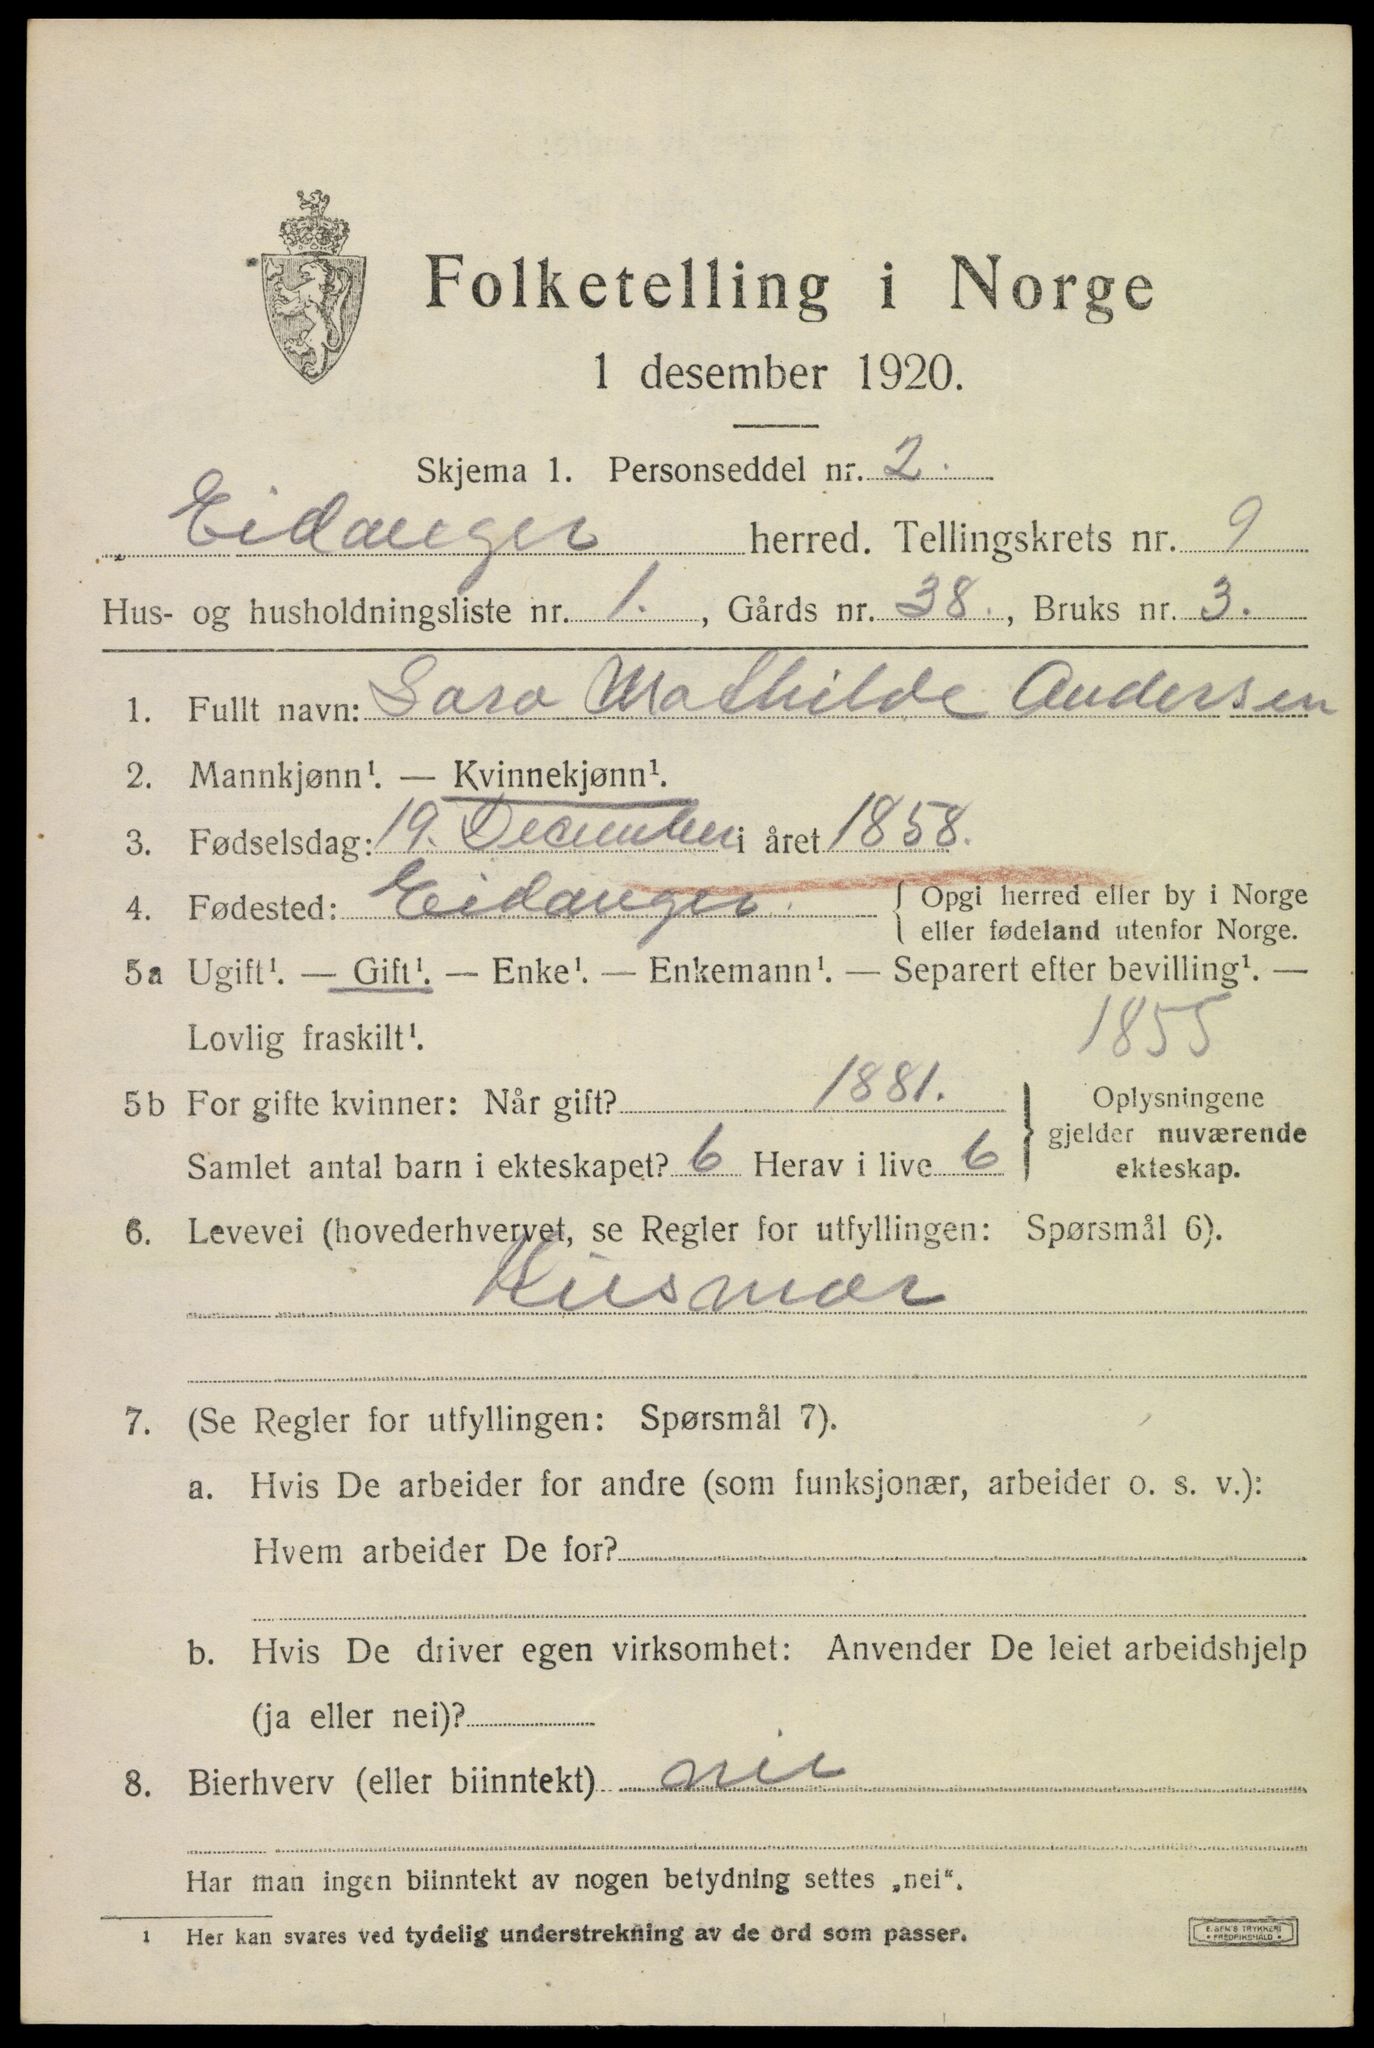 Folketelling i Norge
1 desember 1920.
Skjema 1. Personseddel nr. 2.
Eidanger herred. Tellingskrets nr. 9
Hus- og husholdningsliste nr. 1., Gårds nr. 38., Bruks nr. 3.
1. Fullt navn: Sara Mathilde Andersen
2. Mannkjønn¹. — Kvinnekjønn¹.
3. Fødselsdag: 19. December i året 1858.
4. Fødested: Eidanger. { Opgi herred eller by i Norge
eller fødeland utenfor Norge.
5a Ugift¹. — Gift¹. — Enke¹. — Enkemann¹. — Separert efter bevilling¹. —
Lovlig fraskilt¹. 1855
5b For gifte kvinner: Når gift? 1881. } Oplysningene
gjelder nuværende
Samlet antal barn i ekteskapet? 6 Herav i live 6 ekteskap.
6. Levevei (hovederhvervet, se Regler for utfyllingen: Spørsmål 6).
Husmor
7. (Se Regler for utfyllingen: Spørsmål 7).
a. Hvis De arbeider for andre (som funksjonær, arbeider o. s. v.):
Hvem arbeider De for?
b. Hvis De driver egen virksomhet: Anvender De leiet arbeidshjelp
(ja eller nei)?
8. Bierhverv (eller biinntekt) nei
Har man ingen biinntekt av nogen betydning settes „nei“.
1 Her kan svares ved tydelig understrekning av de ord som passer.
E. SEM'S TRYKKERI
• FREDRIKSHALD •